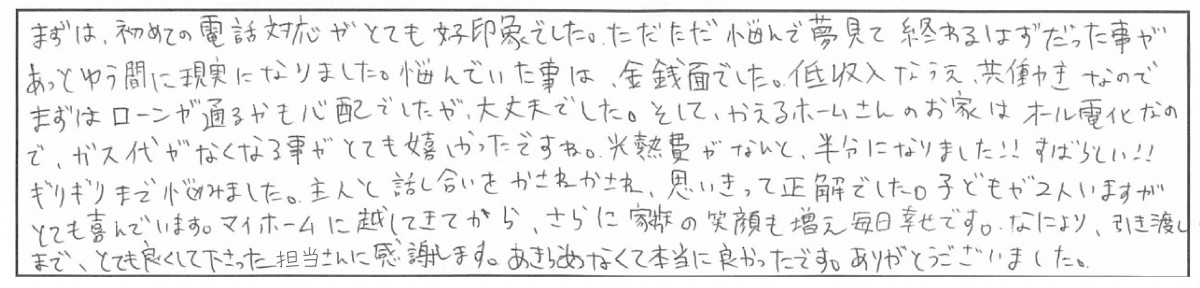 まずは、初めての電話対応がとても好印象でした。ただただ悩んで夢見て終わるはずだった事が
あっとゆう間に現実になりました。悩んでいた事は、金銭面でした。低収入なうえ、共働きなので
まずはローンが通るかも心配でしたが、大丈夫でした。そして、かえるホームさんのお家はオール電化なの
で、ガス代がなくなる事がとても嬉しかったですね。光熱費がなんと、半分になりました!!すばらしい!!
ギリギリまで悩みました。主人と話し合いをかさねかさね、思いきって正解でした。子どもが2人いますが
とても喜んでいます。マイホームに越してきてから、さらに家族の笑顔も増え毎日幸せです。なにより、引き渡し
まで、とても良くして下さった担当さんに感謝します。あきらめなくて本当に良かったです。ありがとうございました。